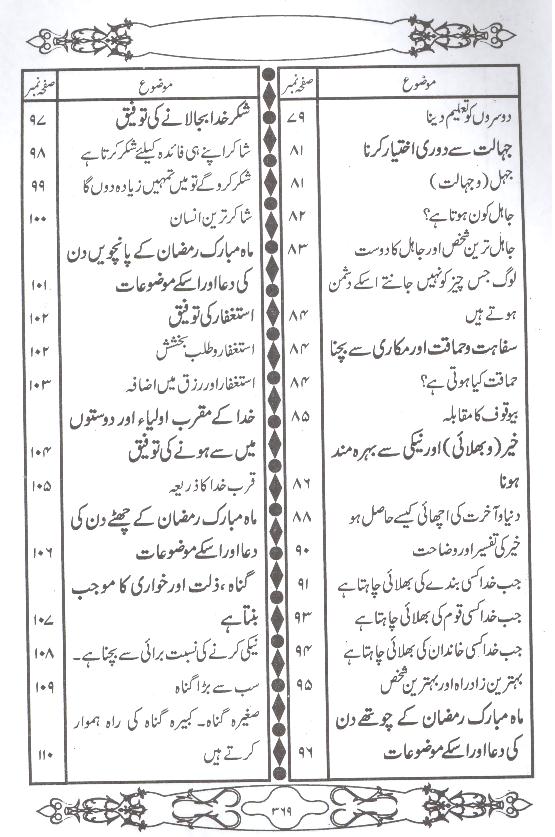 موضوع صفحہ نمبر
دوسروں کو تعلیم دینا ۷۹
جہالت سے دوری اختیار کرنا ۸۱
جہل (و جہالت) ۸۱
جاہل کون ہوتا ہے؟ ۸۲
جاہل ترین شخص اور جاہل کا دوست ۸۳
لوگ جس چیز کو نہیں جانتے اسکے دشمن
ہوتے ہیں ۸۴
سفاہت و حماقت اور مکاری سے بچنا ۸۴
حماقت کیا ہوتی ہے؟ ۸۴
بیوقوف کا مقابلہ ۸۵
خیر (و بھلائی) اور نیکی سے بہرہ مند
ہونا ۸۶
دنیا و آخرت کی اچھائی کیسے حاصل ہو ۸۸
خیر کی تفسیر اور وضاحت ۹۰
جب خدا کسی بندے کی بھلائی چاہتا ہے ۹۱
جب خدا کسی قوم کی بھلائی چاہتا ہے ۹۳
جب خدا کسی خاندان کی بھلائی چاہتا ہے ۹۴
بہترین زاد راہ اور بہترین شخص ۹۵
ماہ مبارک رمضان کے چوتھے دن
کی دعا اور اسکے موضوعات ۹۶
موضوع صفحہ نمبر
شکر خدا بجا لانے کی توفیق ۹۷
شاکر اپنے ہی فائدہ کیلئے شکر کرتا ہے ۹۸
شکر کرو گے تو میں تمہیں زیادہ دوں گا ۹۹
شاکر ترین انسان ۱۰۰
ماہ مبارک رمضان کے پانچویں دن
کی دعا اور اسکے موضوعات ۱۰۱
استغفار کی توفیق ۱۰۲
استغفار و طلب بخشش ۱۰۲
استغفار اور رزق میں اضافہ ۱۰۳
خدا کے مقرب اولیاء اور دوستوں
میں سے ہونے کی توفیق ۱۰۴
قرب خدا کا ذریعہ ۱۰۵
ماہ مبارک رمضان کے چھٹے دن کی
دعا اور اسکے موضوعات ۱۰۶
گناہ، ذلت اور خواری کا موجب
بنتا ہے ۱۰۷
نیکی کرنے کی نسبت برائی سے بچنا ہے۔ ۱۰۸
سب سے بڑا گناہ ۱۰۹
صغیرہ گناہ۔ کبیرہ گناہ کی راہ ہموار
کرتے ہیں ۱۱۰
۳۶۹